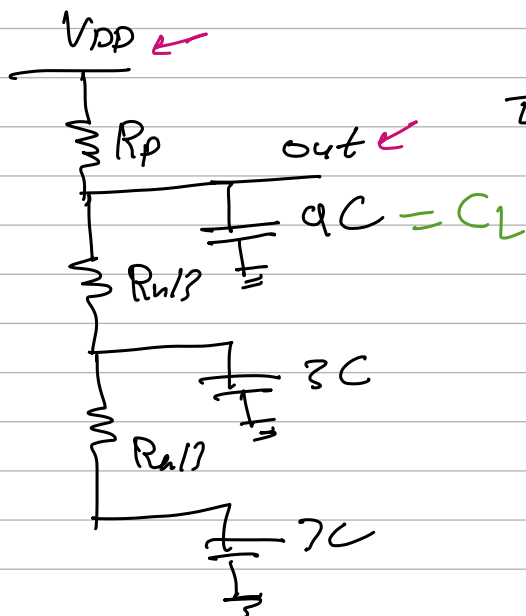 VDD
Rp
out
9C = CL
Rn/3
3C
Rn/3
3C